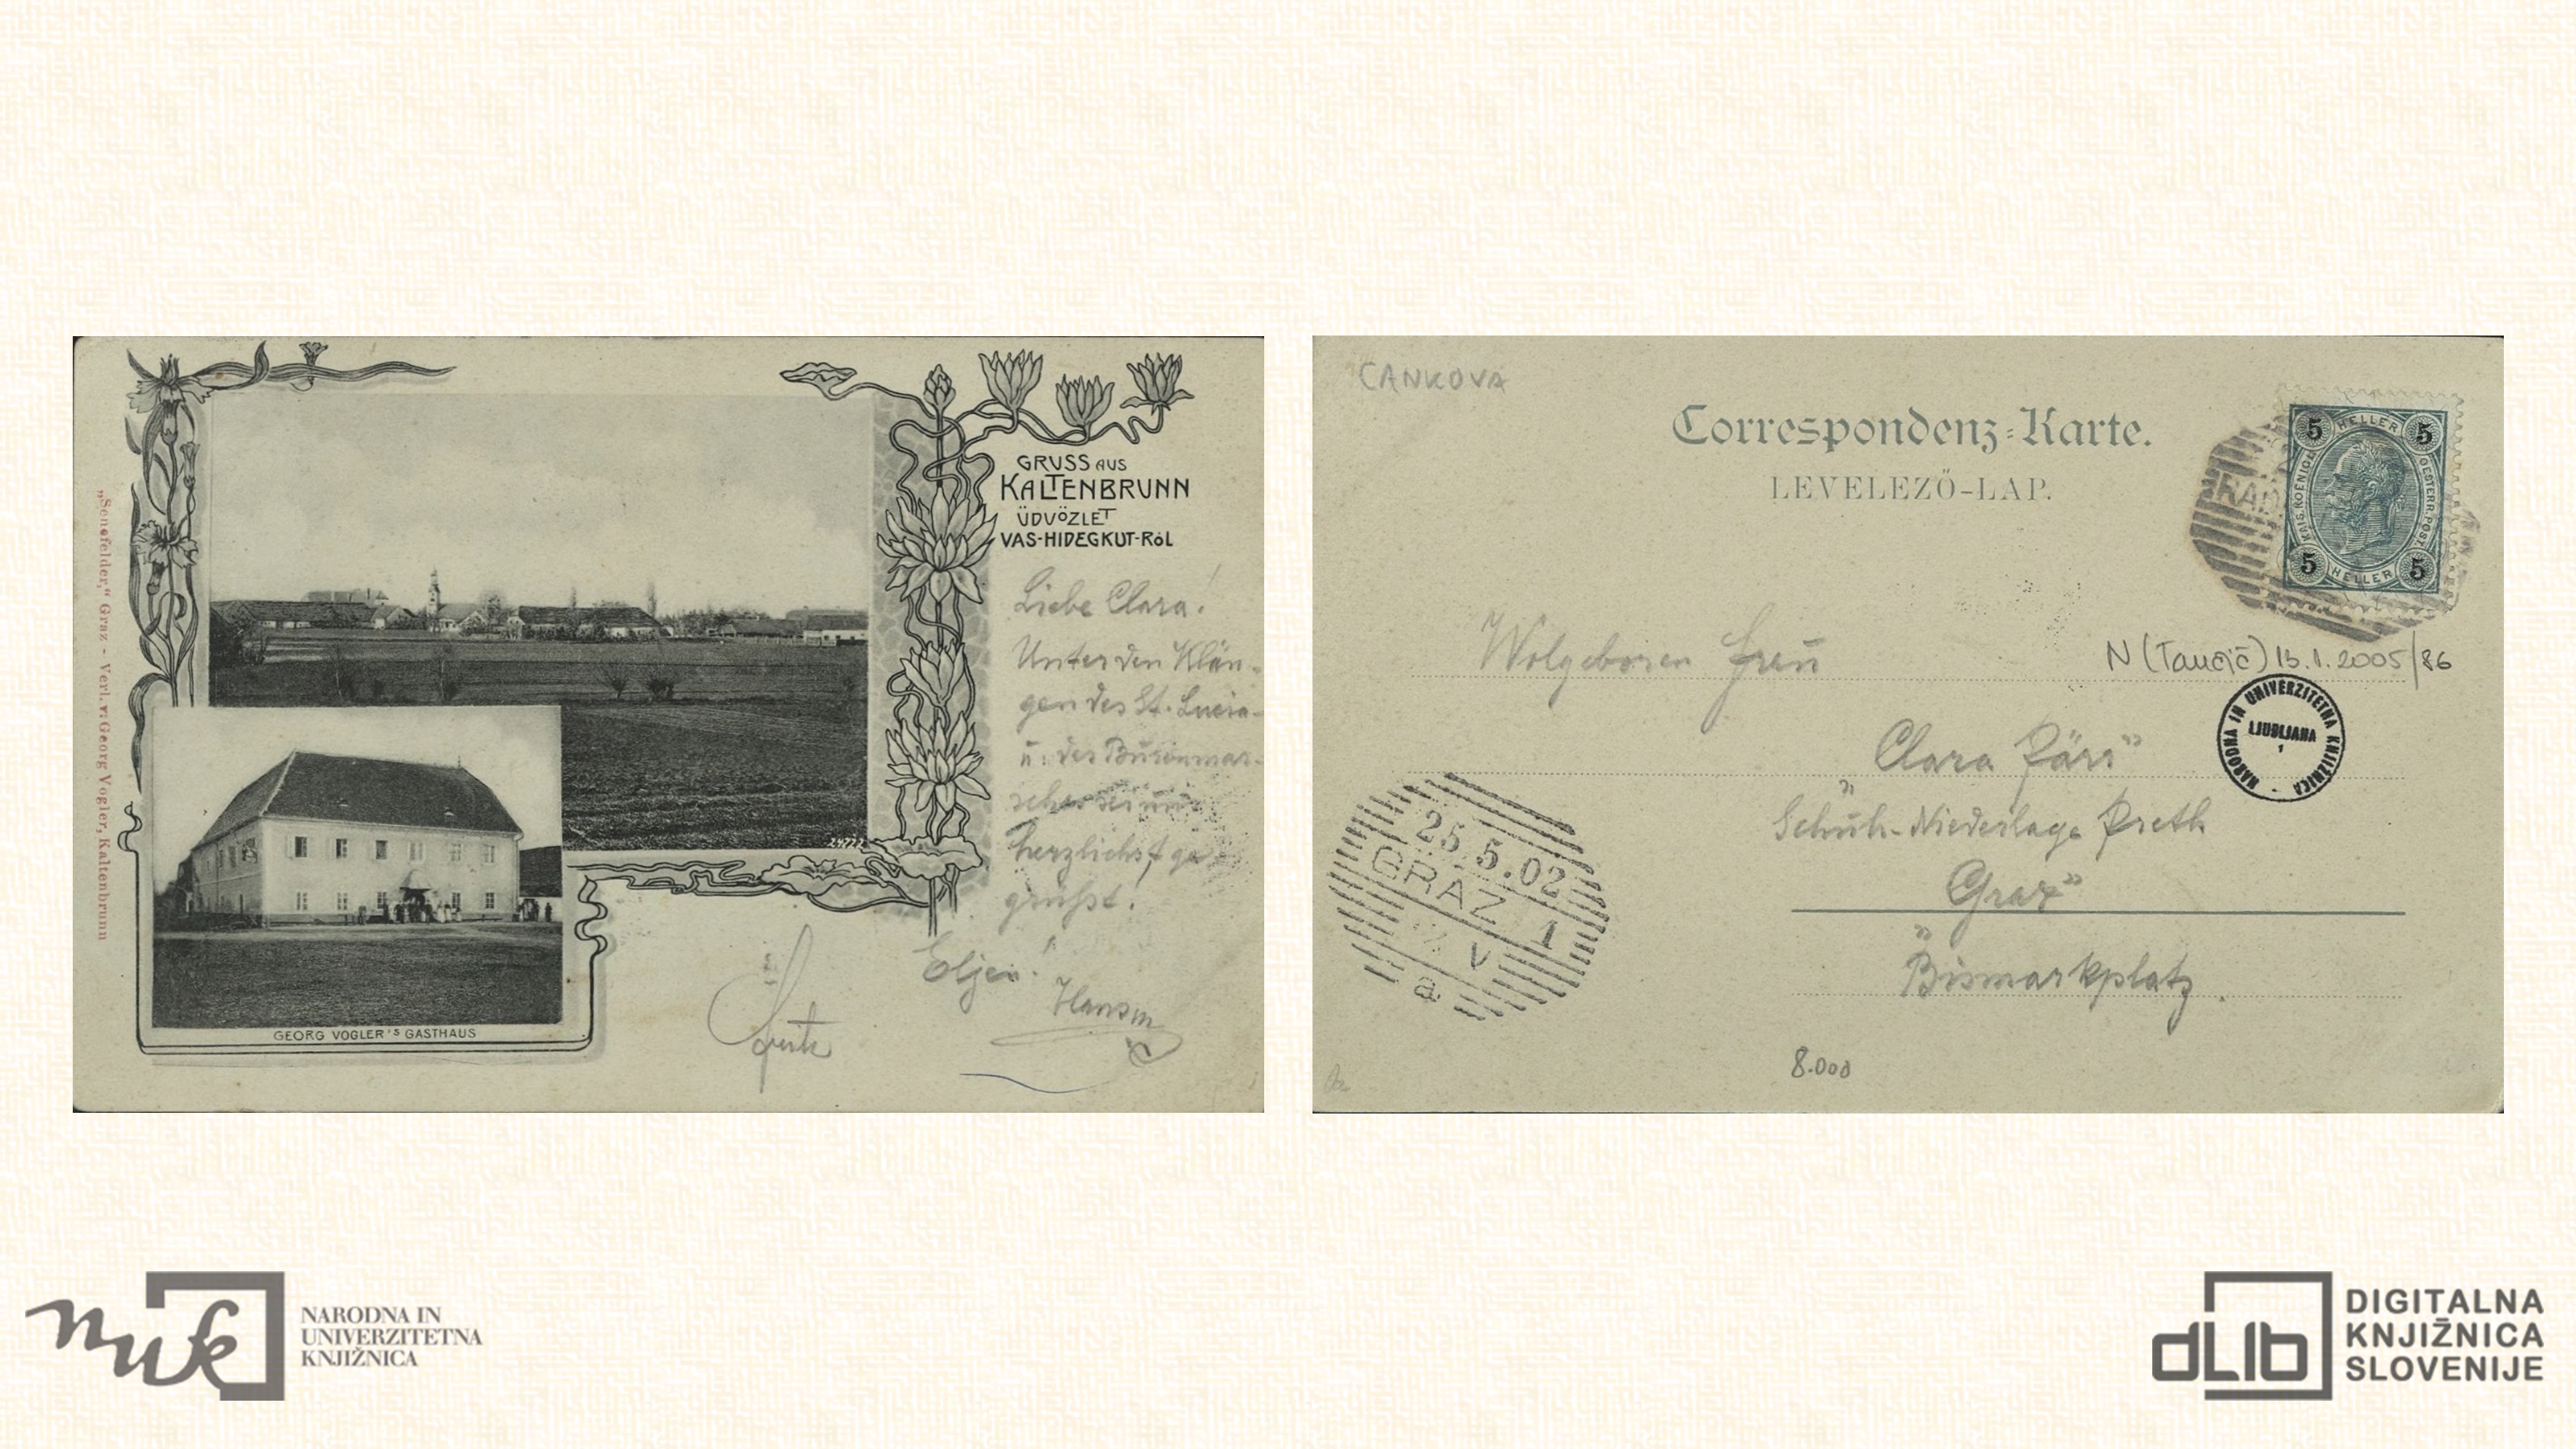 GRUSS AUS
KALTENBRUNN
ÜDVÖZLET
VAS-HIDEGKUT-RóL
Liebe Clara!
Unter den Klän-
gen des St. Lucia-
u. des Burenmar-
sches
herzlichst ge-
grüsst!
Eljen!
Hansm
Fritz
24777
GEORG VOGLER'S GASTHAUS
„Senefelder," Graz - Verl. v. Georg Vogler, Kaltenbrunn
CANKOVA
Correspondenz-Karte.
LEVELEZŐ-LAP.
5 HELLER 5
KAIS. KOENIGL. OESTERR. POST.
5 HELLER 5
RAD
N (Taučič) 13.1.2005/86
NARODNA IN UNIVERZITETNA KNJIŽNICA
LJUBLJANA
1
Wolgeboren Frau
Clara
Schuh-Niederlage
Graz"
Bismarkplatz.
25.5.02
GRAZ 1
V
a
8.000
nuk
NARODNA IN
UNIVERZITETNA
KNJIŽNICA
dLib
DIGITALNA
KNJIŽNICA
SLOVENIJE